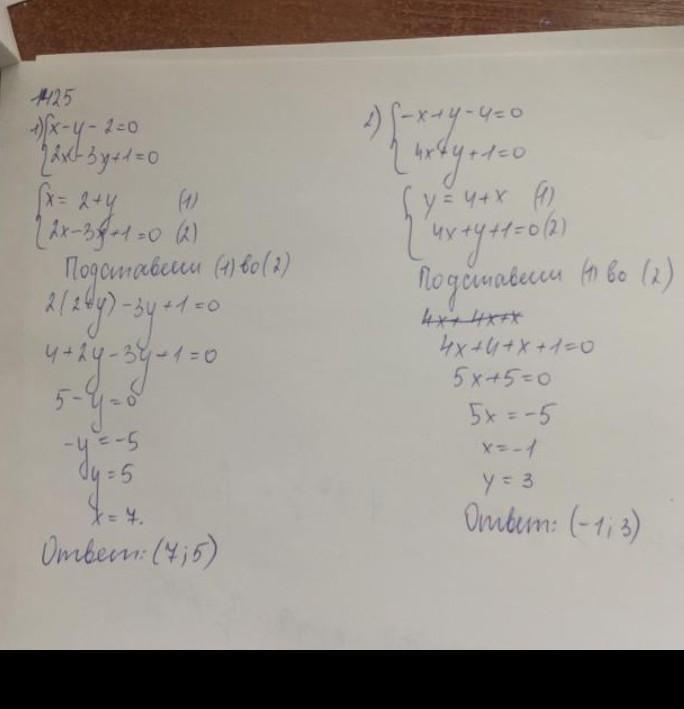 1425
1) {x-y-2=0
{2x-3y+1=0
{x= 2+y (1)
{2x-3y+1=0 (2)
Подставим (1) во (2)
2(2+y)-3y+1=0
4+2y-3y+1=0
5-y=0
-y=-5
y=5
x=7.
Ответ: (7;5)
2) {-x+y-4=0
{4x+y+1=0
{y=4+x (1)
{4x+y+1=0 (2)
Подставим (1) во (2)
4x+4x+x
4x+4+x+1=0
5x+5=0
5x=-5
x=-1
y=3
Ответ: (-1;3)